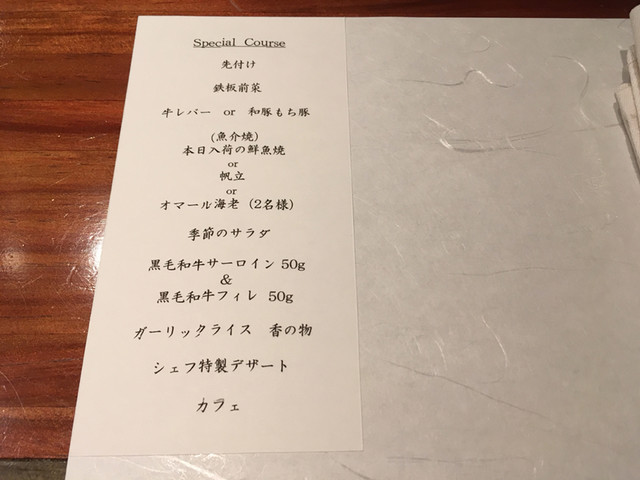 Special Course
先付け
鉄板前菜
牛レバー or 和豚もち豚
(魚介焼)
本日入荷の鮮魚焼
or
帆立
or
オマール海老 (2名様)
季節のサラダ
黒毛和牛サーロイン 50g
&
黒毛和牛フィレ 50g
ガーリックライス 香の物
シェフ特製デザート
カフェ